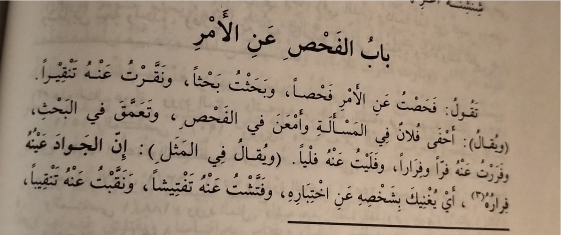 بابُ الفَحْصِ عَنِ الأَمْرِ
تَقُولُ: فَحَصْتُ عَنِ الأَمْرِ فَحْصاً، وبَحَثْتُ بَحْثاً، ونَقَّرْتُ عَنْهُ تَنْقِيْراً.
(ويُقالُ): أَحْفَى فُلانٌ فِي المَسْأَلَةِ وأَمْعَنَ في الفَحْصِ، وتَعَمَّقَ في البَحْثِ،
وفَرَرْتُ عَنْهُ فَرّاً وفِرَاراً، وفَلَيْتُ عَنْهُ فَلْياً. (ويُقالُ في المَثَلِ): إِنّ الجَوادَ عَيْنُهُ
فِرارُهُ(٣)، أيْ يُغْنِيكَ بِشَخْصِهِ عَنِ اخْتِبَارِهِ، وفَتَّشْتُ عَنْهُ تَفْتِيشاً، ونَقَّبْتُ عَنْهُ تَنْقِيباً،